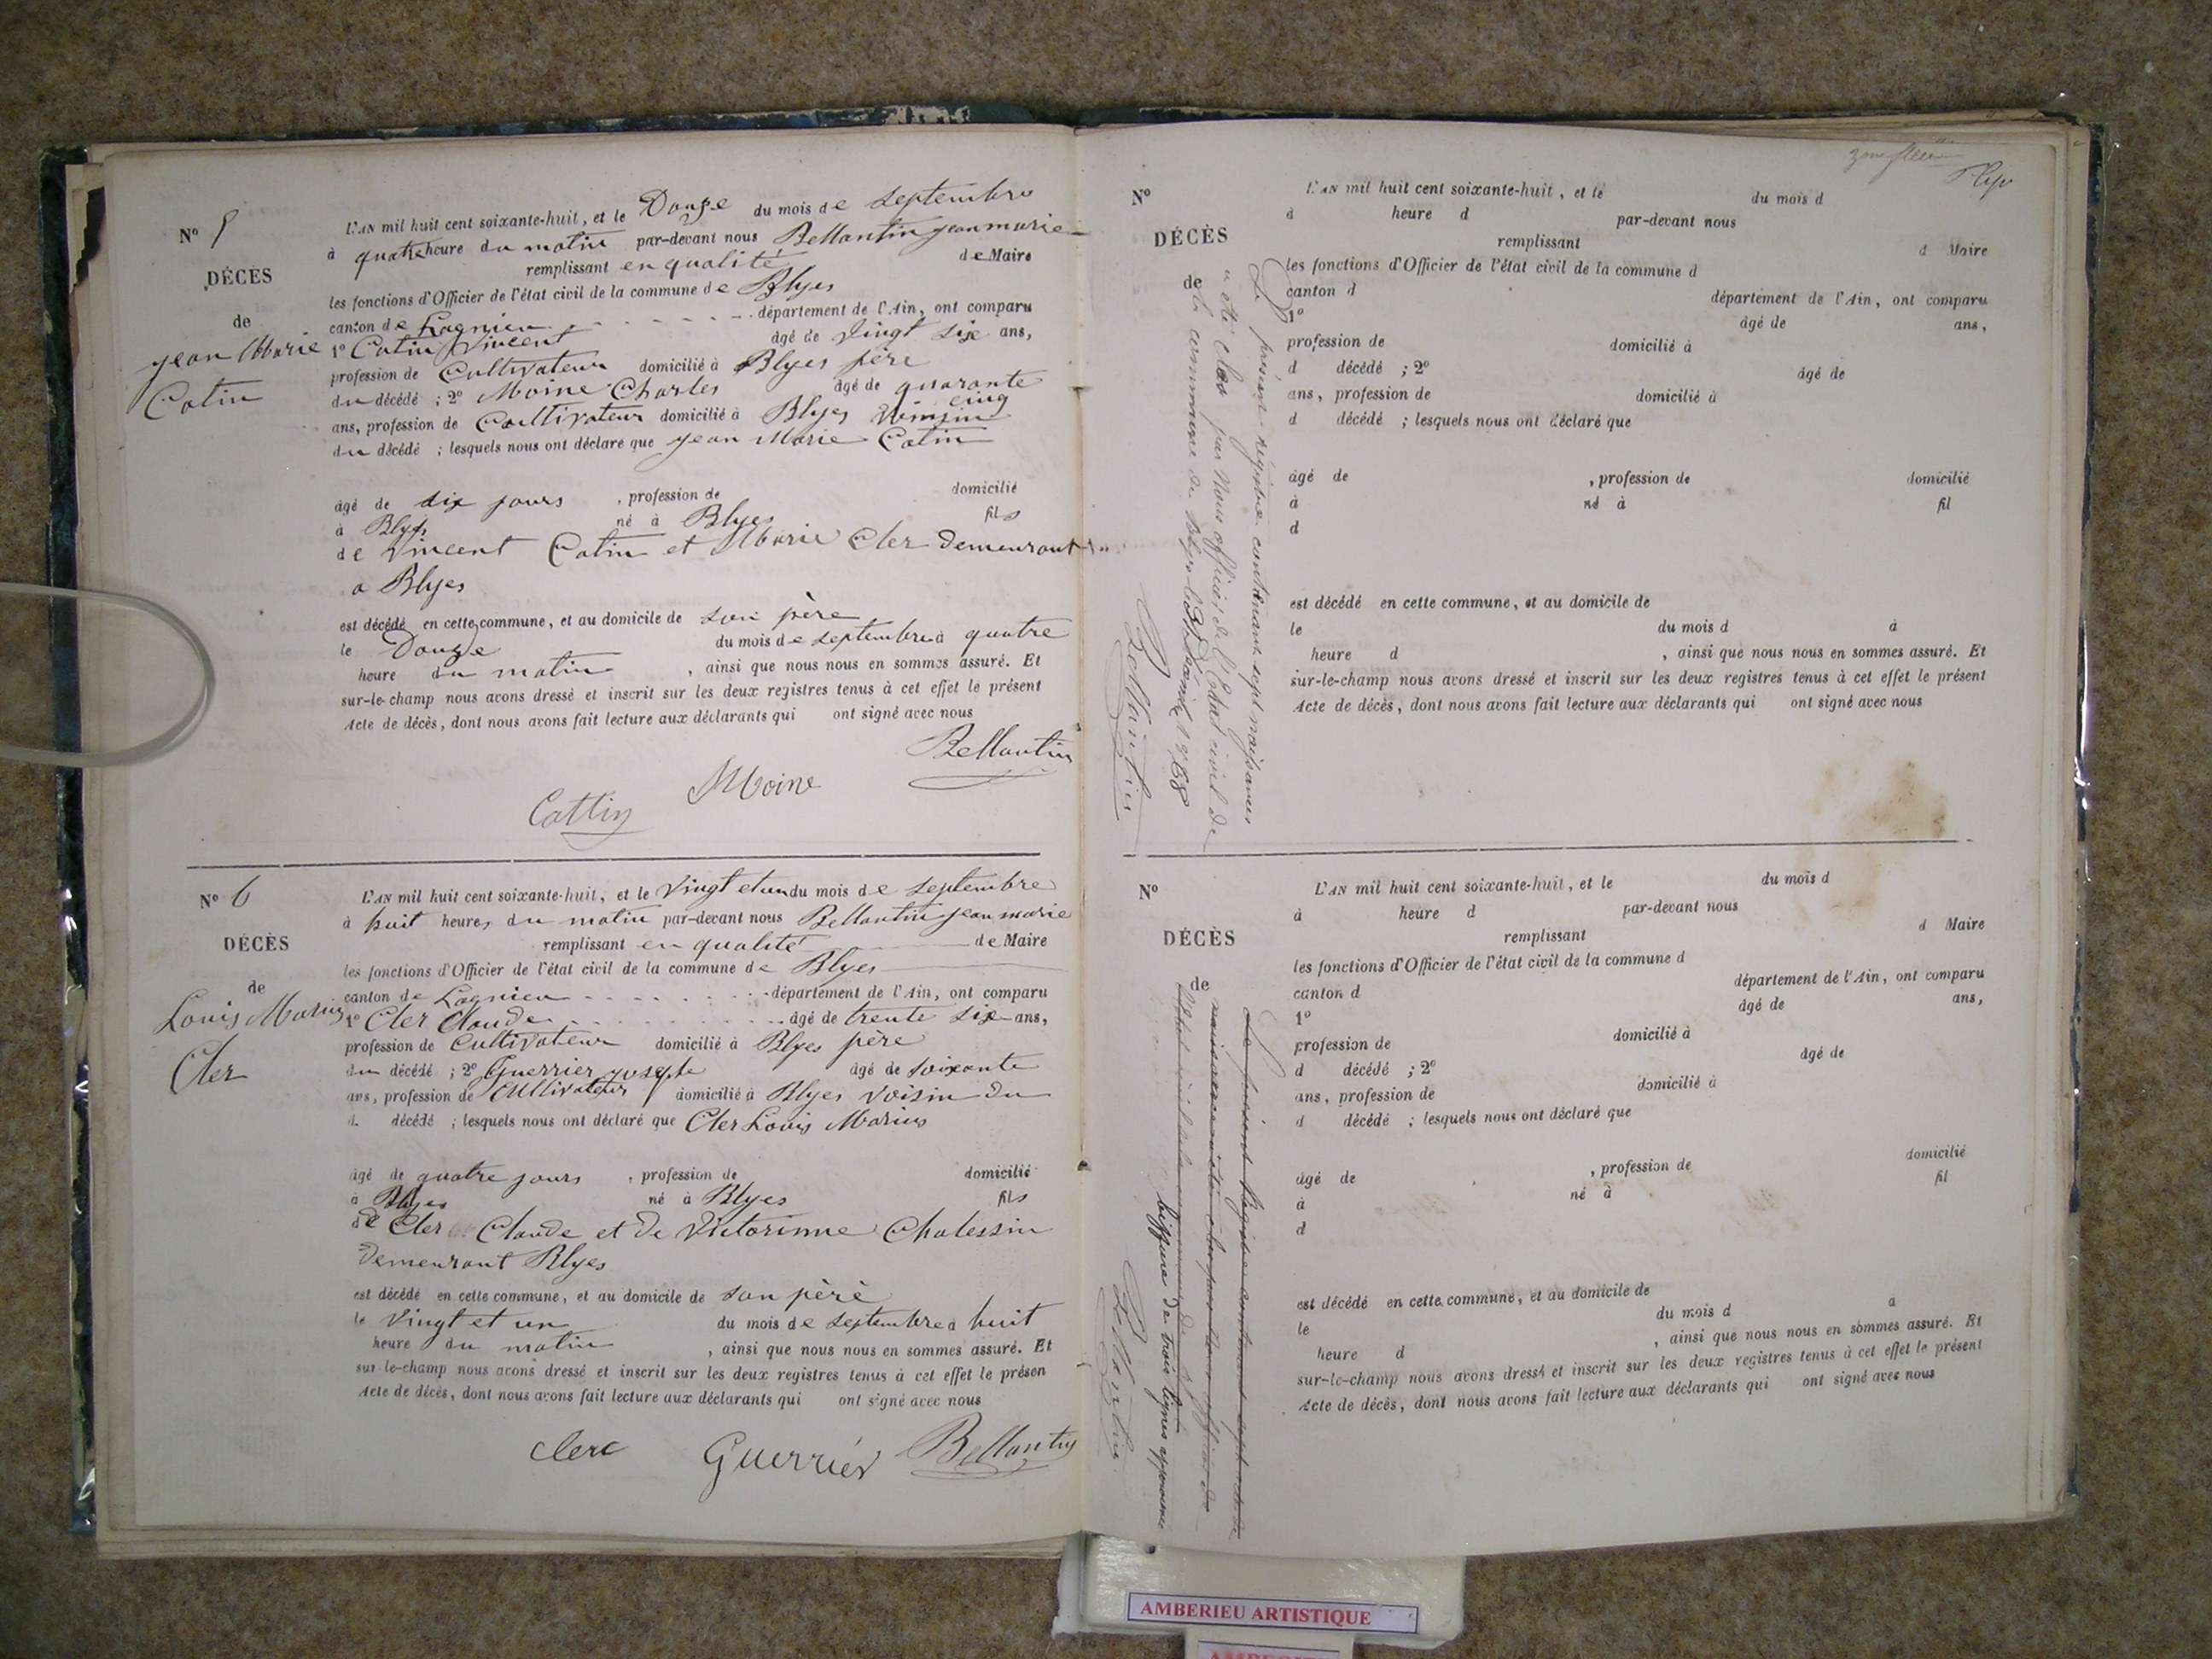 N° 5
DÉCÈS
de
jean Marie
Catin
L'AN mil huit cent soixante-huit, et le Douze du mois de septembre
à quatre heure du matin par-devant nous Bellantin jean marie
remplissant en qualité de Maire
les fonctions d'Officier de l'état civil de la commune de Blyes
canton de Lagnieu département de l'Ain, ont comparu
1° Catin Vincent âgé de vingt six ans,
profession de Cultivateur domicilié à Blyes père
du décédé ; 2° Moine Charles âgé de quarante
cinq
ans, profession de Coultivateur domicilié à Blyes
du décédé ; lesquels nous ont déclaré que jean Marie Catin
âgé de dix jours , profession de domicilié
à Blyes né à Blyes fils
de Vincent Catin et Marie Cler Demeurant
a Blyes
est décédé en cette commune, et au domicile de son père
le Douze du mois de septembre à quatre
heure du matin , ainsi que nous nous en sommes assuré. Et
sur-le-champ nous avons dressé et inscrit sur les deux registres tenus à cet effet le présent
Acte de décès, dont nous avons fait lecture aux déclarants qui ont signé avec nous
Bellantin
Moine
Cattin
N° 6
DÉCÈS
de
Louis Marius
Cler
L'AN mil huit cent soixante-huit, et le Vingt et un du mois de septembre
à huit heures du matin par-devant nous Bellantin jean marie
remplissant en qualité de Maire
les fonctions d'Officier de l'état civil de la commune de Blyes
canton de Lagnieu département de l'Ain, ont comparu
1° Cler Claude âgé de trente six ans,
profession de Cultivateur domicilié à Blyes père
du décédé ; 2° Guerrier joseph âgé de soixante
ans, profession de Cultivateur domicilié à Blyes voisin du
d décédé ; lesquels nous ont déclaré que Cler Louis Marius
âgé de quatre jours , profession de domicilié
à Blyes né à Blyes fils
de Cler Claude et de Victorinne Chalessin
Demeurant Blyes
est décédé en cette commune, et au domicile de son père
le Vingt et un du mois de septembre à huit
heure du matin , ainsi que nous nous en sommes assuré. Et
sur-le-champ nous avons dressé et inscrit sur les deux registres tenus à cet effet le présen
Acte de décès, dont nous avons fait lecture aux déclarants qui ont signé avec nous
clerc Guerrier Bellantin
N°
DÉCÈS
de
Le présent régistre contenant sept naissances
a été clos par Nous officier de l'Etat civil de
la commune de Blyes le 1868
Bellantin
L'AN mil huit cent soixante-huit, et le du mois d
à heure d par-devant nous
remplissant d Maire
les fonctions d'Officier de l'état civil de la commune d
canton d département de l'Ain, ont comparu
1° âgé de ans,
profession de domicilié à
d décédé ; 2° âgé de
ans, profession de domicilié à
d décédé ; lesquels nous ont déclaré que
âgé de , profession de domicilié
à né à fil
d
est décédé en cette commune, et au domicile de
le du mois d à
heure d , ainsi que nous nous en sommes assuré. Et
sur-le-champ nous avons dressé et inscrit sur les deux registres tenus à cet effet le présent
Acte de décès, dont nous avons fait lecture aux déclarants qui ont signé avec nous
N°
DÉCÈS
de
Le présent Régistre contenant sept acte de
biffure de trois lignes approuvée
Bellantin
L'AN mil huit cent soixante-huit, et le du mois d
à heure d par-devant nous
remplissant d Maire
les fonctions d'Officier de l'état civil de la commune d
canton d département de l'Ain, ont comparu
1° âgé de ans,
profession de domicilié à
d décédé ; 2° âgé de
ans, profession de domicilié à
d décédé ; lesquels nous ont déclaré que
âgé de , profession de domicilié
à né à fil
d
est décédé en cette commune, et au domicile de
le du mois d à
heure d , ainsi que nous nous en sommes assuré. Et
sur-le-champ nous avons dressé et inscrit sur les deux registres tenus à cet effet le présent
Acte de décès, dont nous avons fait lecture aux déclarants qui ont signé avec nous
AMBERIEU ARTISTIQUE